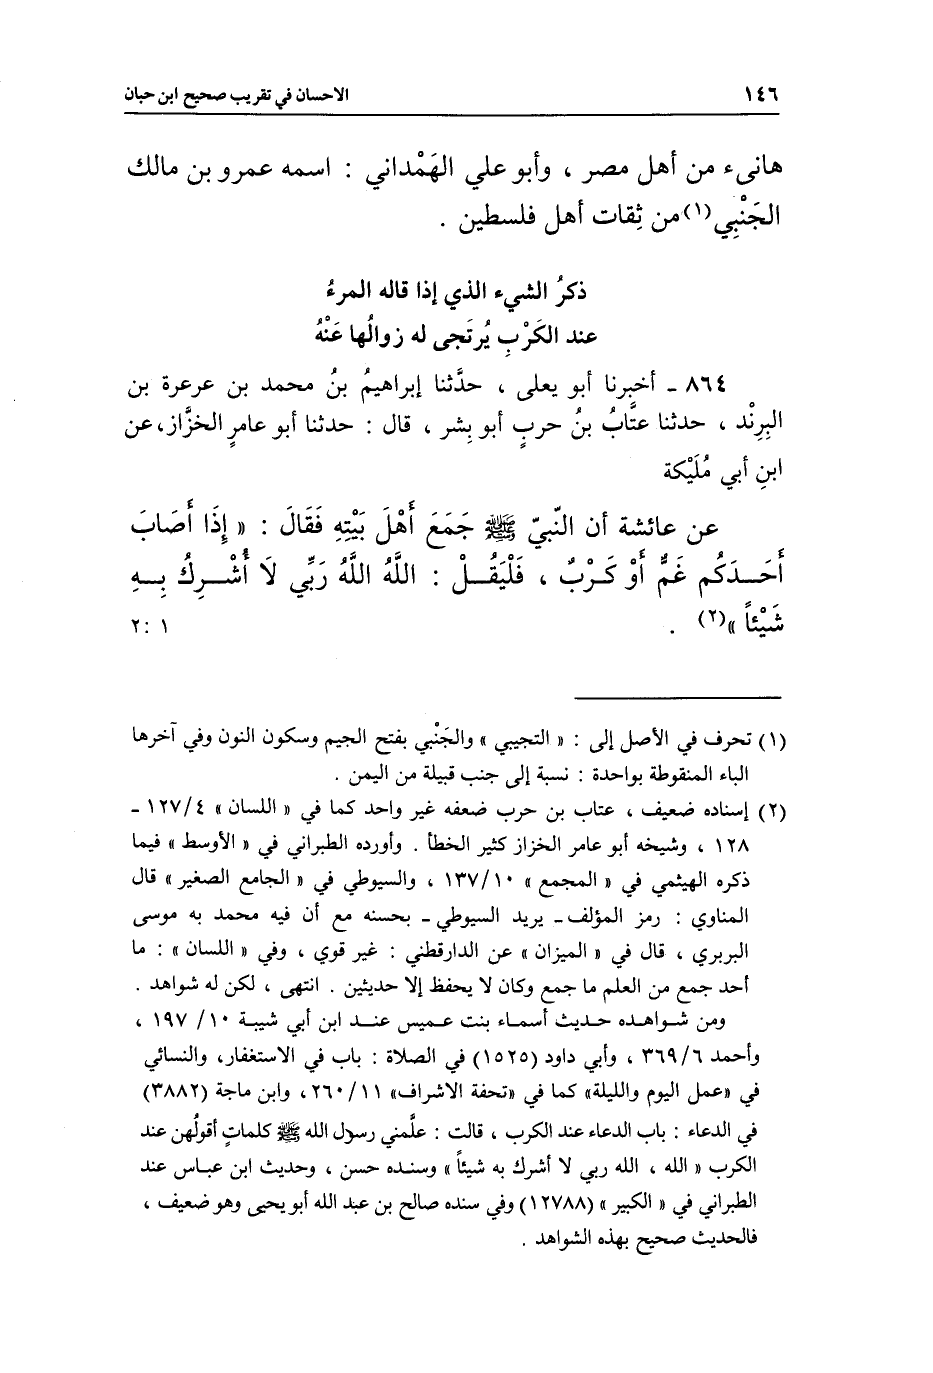 ١٤٦ الاحسان في تقريب صحيح ابن حبان
هانىء من أهل مصر ، وأبو علي الهَمْداني : اسمه عمرو بن مالك
الجَنْبِي(١) من ثِقات أهل فلسطين .
ذكرُ الشيء الذي إذا قاله المرءُ
عند الكَرْبِ يُرتَجى له زوالُها عَنْهُ
٨٦٤ ـ أخبرنا أبو يعلى ، حدَّثنا إبراهيمُ بنُ محمد بن عرعرة بن
البِرِنْد ، حدثنا عتَّابُ بنُ حربٍ أبو بِشر ، قال : حدثنا أبو عامرٍ الخزَّاز، عن
ابنِ أبي مُلَيْكة
عن عائشة أن النّبيّ ﷺ جَمَعَ أَهْلَ بَيْتِهِ فَقَالَ : « إِذَا أَصَابَ
أَحَـدَكُم غَمٌّ أَوْ كَـرْبٌ ، فَلْيَقُـلْ : اللَّهُ اللَّهُ رَبِّي لَا أُشْـرِكُ بِـهِ
شَيْئاً »(٢) . ١ : ٢
(١) تحرف في الأصل إلى : « التجيبي » والجَنْبي بفتح الجيم وسكون النون وفي آخرها
الباء المنقوطة بواحدة : نسبة إلى جنب قبيلة من اليمن .
(٢) إسناده ضعيف ، عتاب بن حرب ضعفه غير واحد كما في « اللسان » ١٢٧/٤ ـ
١٢٨ ، وشيخه أبو عامر الخزاز كثير الخطأ . وأورده الطبراني في « الأوسط » فيما
ذكره الهيثمي في « المجمع » ١٣٧/١٠ ، والسيوطي في « الجامع الصغير » قال
المناوي : رمز المؤلف ـ يريد السيوطي ـ بحسنه مع أن فيه محمد به موسى
البربري ، قال في « الميزان » عن الدارقطني : غير قوي ، وفي « اللسان » : ما
أحد جمع من العلم ما جمع وكان لا يحفظ إلا حديثين . انتهى ، لكن له شواهد .
ومن شـواهـده حـديث أسمـاء بنت عـميس عنـد ابن أبي شيبـة ١٠/ ١٩٧ ،
وأحمد ٣٦٩/٦ ، وأبي داود (١٥٢٥) في الصلاة : باب في الاستغفار، والنسائي
في «عمل اليوم والليلة» كما في «تحفة الاشراف» ٢٦٠/١١، وابن ماجة (٣٨٨٢)
في الدعاء : باب الدعاء عند الكرب ، قالت : علَّمني رسول الله ﷺ كلماتٍ أقولُهن عند
الكرب « الله ، الله ربي لا أشرك به شيئاً » وسنده حسن ، وحديث ابن عبـاس عند
الطبراني في « الكبير » (١٢٧٨٨) وفي سنده صالح بن عبد الله أبو يحيى وهو ضعيف ،
فالحديث صحيح بهذه الشواهد .